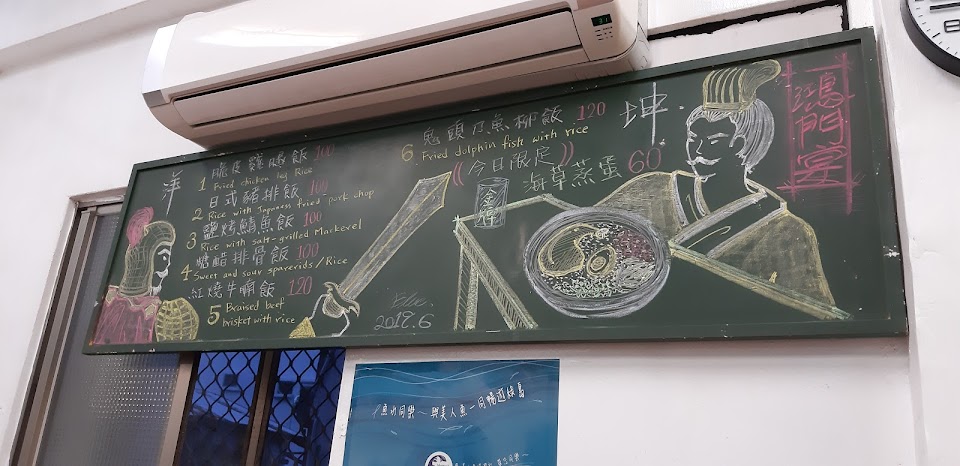 洋
1 脆皮雞腿飯 100
Fried chicken leg Rice
2 日式豬排飯 100
Rice with Japanese fried pork chop
3 鹽烤鯖魚飯 100
Rice with salt-grilled Mackerel
4 糖醋排骨飯 100
Sweet and sour spareribs/Rice
紅燒牛腩飯 120
5 Braised beef
brisket with rice
鬼頭刀魚柳飯 120
6. Fried dolphin fish with rice
((今日限定))
海草蒸蛋 60
坤
鴻門宴
2019.6
31
8